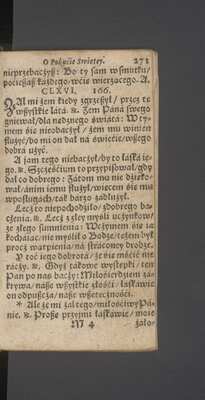 O Pożyćie Swiętey. 271
nieprzebaczyß: Bo ty sam w smutku/
poćießaß każdego/ wćis wierzącego. A.
CLXVI. 166.
ZAl mi żem kiedy zgrzeßył / przez te
wßystkie lata. &. Zem Pana swego
gniewał/ dla nędznego świata: W tym
iem się nieobaczył / żem mu winien
służyć/ bo mi on dał na świećie/ wßego
dobra użyć.
A żam tego niebaczył/ by to łaska ie-
go. &. Szczęśćium to przypisował/ gdy
dał co dobrego: Zadom mu nie dzięko-
wał/ ániem iemu służył/
wposługach/ tak barzo zadłużył.
Lecz to niepochodziło/ z dobrego ba-
czenia. &. Lecz z złey myśli uczynkow/
ze złego sumnienia:
kochaiąc/ nie myślił o Bodze/ tołem był
procz wątpienia/ na straconey drodze.
Y toć iego dobrota/ że się mśćić nie
raczy. &. Gdyż takowe występki / ten
Pan po nas baczy: Miłośierdziem za-
krywa/ naße wßystkie złośći / łaskawie
on odpußcza/ naße wßetecznośći.
* Ale żć mi żal tego/ miłośćiwy Pa-
nie. &. Proßę przyimi łaskawie/ moie
M 4 żało-